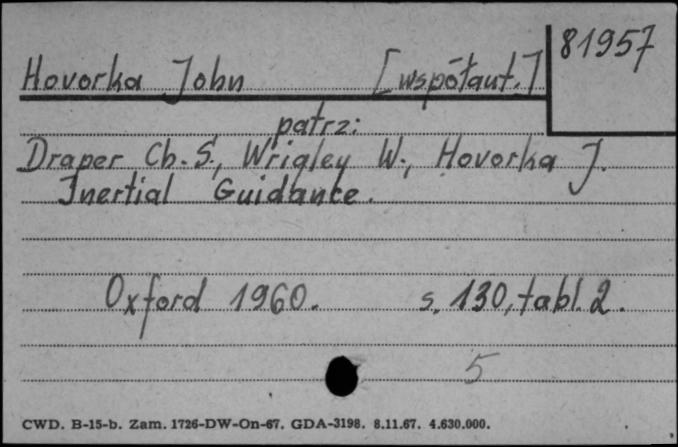 81957
Hovorka John [współaut.]
patrz:
Draper Ch. S., Wrigley W., Hovorka J.
Inertial Guidance.
Oxford 1960. s. 130, tabl. 2.
5
CWD. B-15-b. Zam. 1726-DW-On-67. GDA-3198. 8.11.67. 4.630.000.